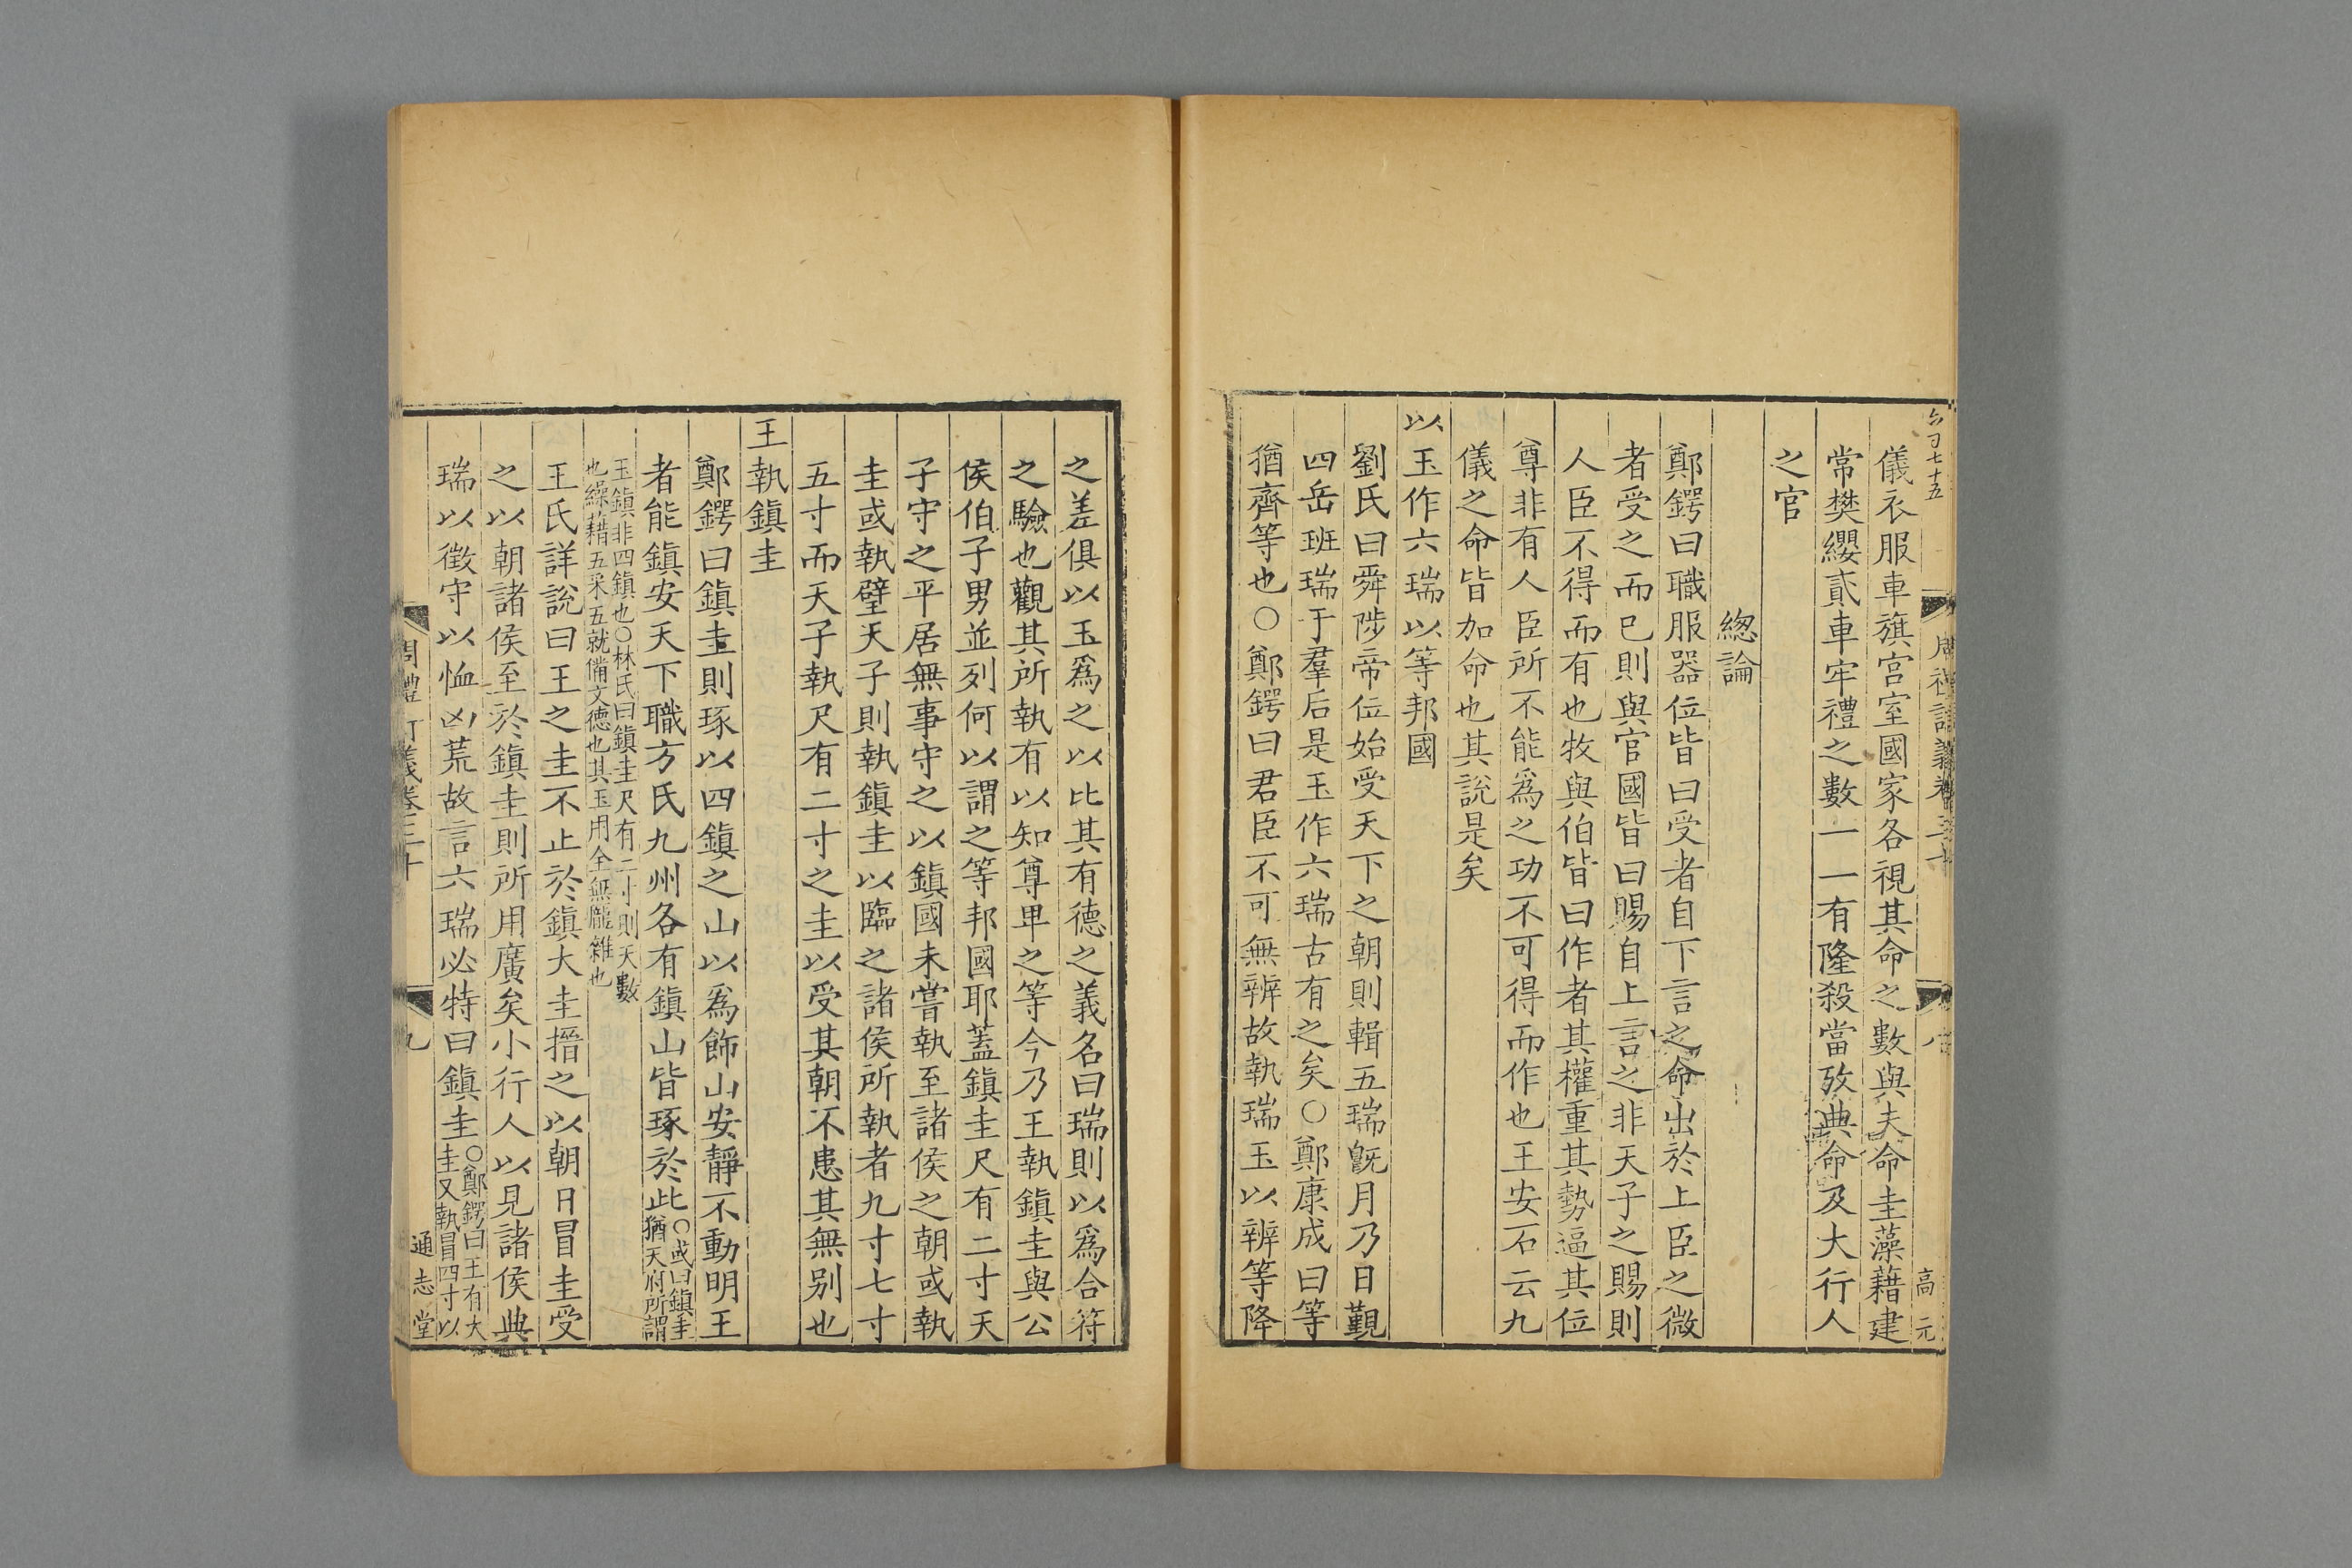 儀衣服車旗宮室國家各視其命之數與夫命圭藻藉建
常樊纓貳車牢禮之數一一有隆殺當攷典命及大行人
之官
緫論
鄭鍔曰職服器位皆曰受者自下言之命出於上臣之微
者受之而已則與官國皆曰賜自上言之非天子之賜則
人臣不得而有也牧與伯皆曰作者其權重其勢逼其位
尊非有人臣所不能爲之功不可得而作也王安石云九
儀之命皆加命也其說是矣
以玉作六瑞以等邦國
劉氏曰舜陟帝位始受天下之朝則輯五瑞旣月乃日覲
四岳班瑞于羣后是玉作六瑞古有之矣○鄭康成曰等
猶齊等也○鄭鍔曰君臣不可無辨故執瑞玉以辨等降
高元
之差俱以玉爲之以比其有德之義名曰瑞則以爲合符
之驗也觀其所執有以知尊卑之等今乃王執鎮圭與公
侯伯子男並列何以謂之等邦國耶蓋鎮圭尺有二寸天
子守之平居無事守之以鎮國未嘗執至諸侯之朝或執
圭或執璧天子則執鎮圭以臨之諸侯所執者九寸七寸
五寸而天子執尺有二寸之圭以受其朝不患其無别也
王執鎮圭
鄭鍔曰鎮圭則琢以四鎮之山以爲飾山安靜不動明王
者能鎮安天下職方氏九州各有鎮山皆琢於此○或曰鎮圭猶天府所謂
玉鎮非四鎮也○林氏曰鎮圭尺有二寸則天數
也繅藉五采五就備文德也其玉用全無龐雜也
王氏詳說曰王之圭不止於鎮大圭搢之以朝日冒圭受
之以朝諸侯至於鎮圭則所用廣矣小行人以見諸侯典
瑞以徵守以恤凶荒故言六瑞必特曰鎮圭○鄭鍔曰王有大圭又執冒四寸以
周禮訂義卷三十
九
通志堂